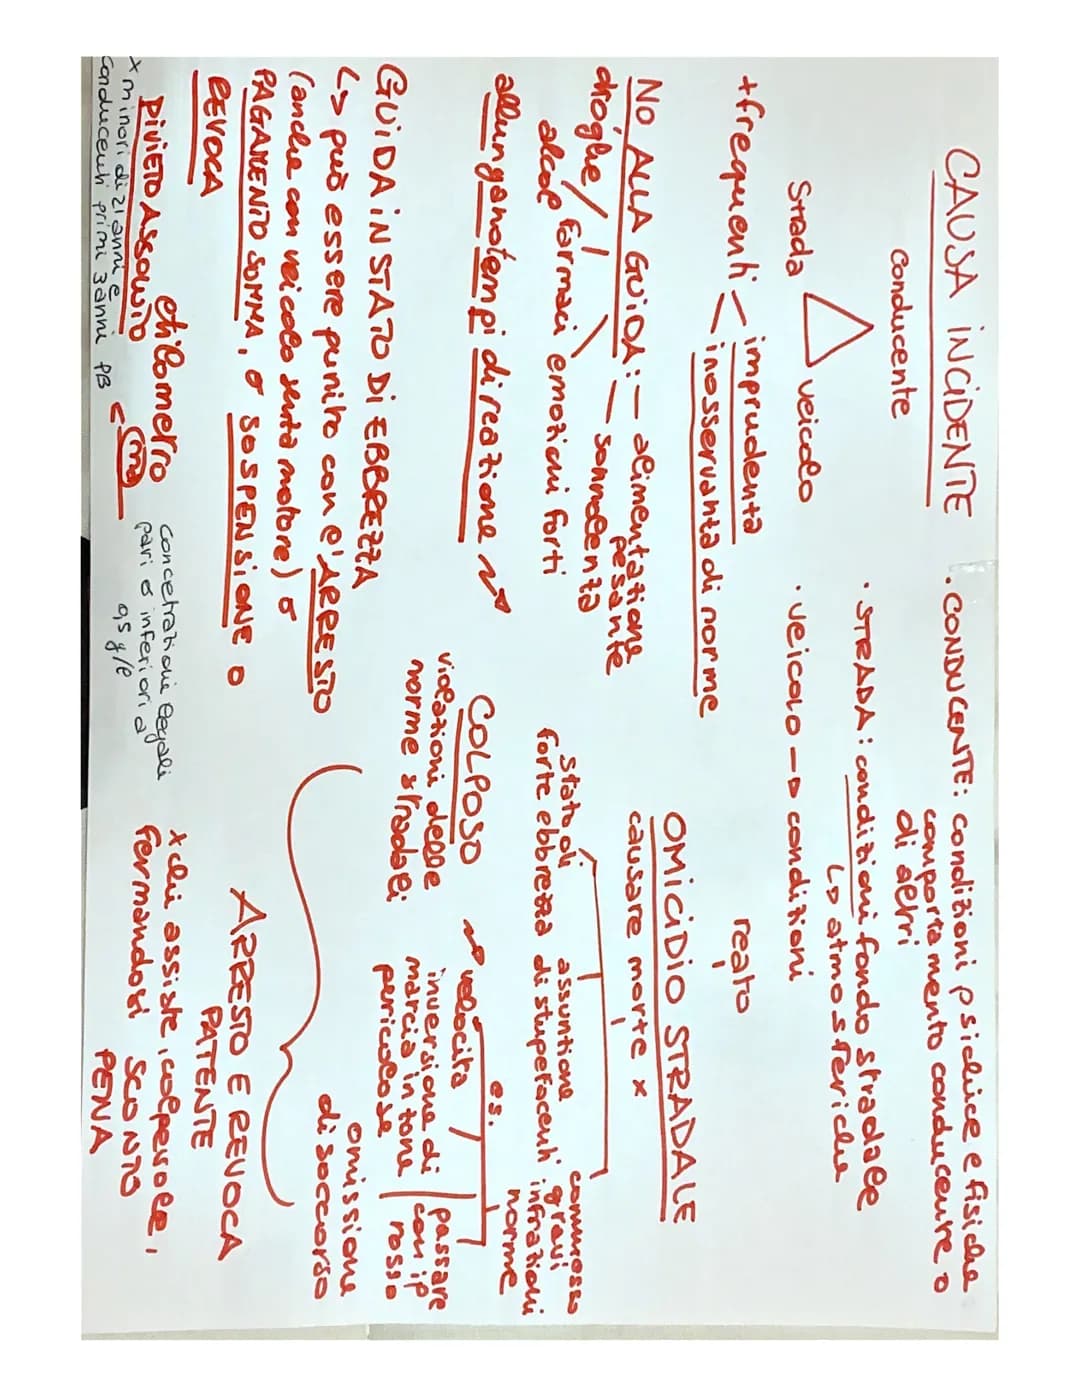 CAUSA INCIDENTE
Conducente
Strada
veicolo
• CONDUCENTE: condizioni psichice e fisiche
comportamento conducente o
di altri
• STRADA: condizioni fondo stradale
↳ atmosferiche
• VEICOLO → condizioni
+frequenti < imprudenza
inosservanza di norme
NO ALLA GUIDA: - alimentazione
pesante
droghe / farmaci - sonnolenza
alcol emozioni forti
allungano tempi di reazione
GUIDA IN STATO DI EBBREZZA
↳ può essere punito con l'ARRESTO
(anche con veicolo senza motore) o
PAGAMENTO SOMMA, o SOSPENSIONE o
REVOCA
etilometro
DIVIETO ASSOLUTO
x minori di 21 anni e
conducenti primi 3 anni PB
< ma
concetrazioni legali
pari o inferiori a
0,5 g/l
reato
OMICIDIO STRADALE
causare morte x
stato di
forte ebbrezza
assunzione
di stupefacenti
commesso
gravi
infrazioni
norme
COLPOSO
violazioni delle
norme stradali
es.
velocita
inversione di
marcia in zone
pericolose
passare
con il
rosso
omissione
di soccorso
ARRESTO E REVOCA
PATENTE
x chi assiste, colpevole,
fermandosi SCONTO
PENA